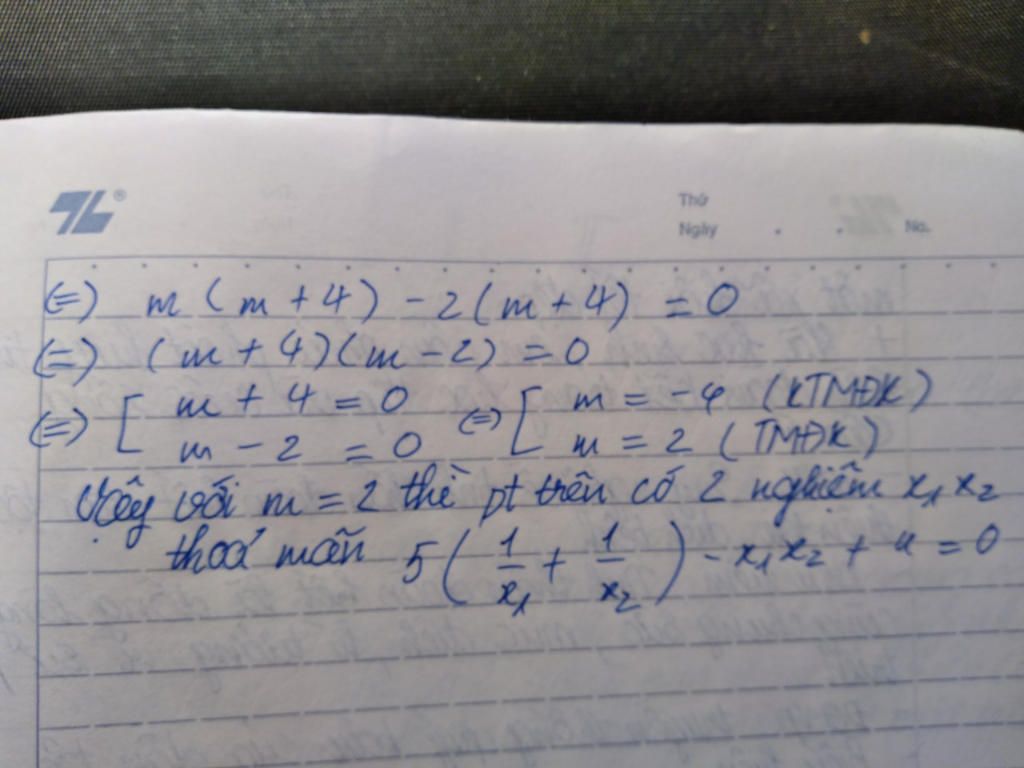 TL®
Thứ
Ngày . . No.
(=) m (m + 4) - 2 (m + 4) = 0
(=) (m + 4)(m - 2) = 0
(=) [ m + 4 = 0 (=) [ m = -4 (KTMĐK)
m - 2 = 0 m = 2 (TMĐK)
Vậy với m = 2 thì pt trên có 2 nghiệm x₁ x₂
thoả mãn 5 ( 1/x₁ + 1/x₂ ) - x₁x₂ + 4 = 0